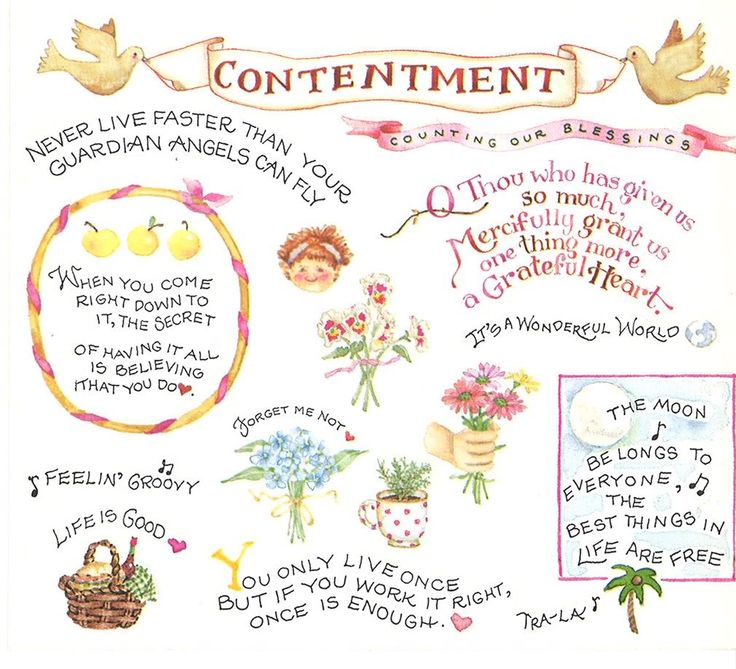 CONTENTMENT
COUNTING OUR BLESSINGS
NEVER LIVE FASTER THAN YOUR
GUARDIAN ANGELS CAN FLY
O Thou who has given us
so much,
Mercifully grant us
one thing more,
a Grateful Heart.
WHEN YOU COME
RIGHT DOWN TO
IT, THE SECRET
OF HAVING IT ALL
IS BELIEVING
THAT YOU DO.
IT'S A WONDERFUL WORLD
FORGET ME NOT
THE MOON
BELONGS TO
EVERYONE,
THE
BEST THINGS IN
LIFE ARE FREE
FEELIN' GROOVY
LIFE IS GOOD
YOU ONLY LIVE ONCE
BUT IF YOU WORK IT RIGHT,
ONCE IS ENOUGH.
TRA-LA